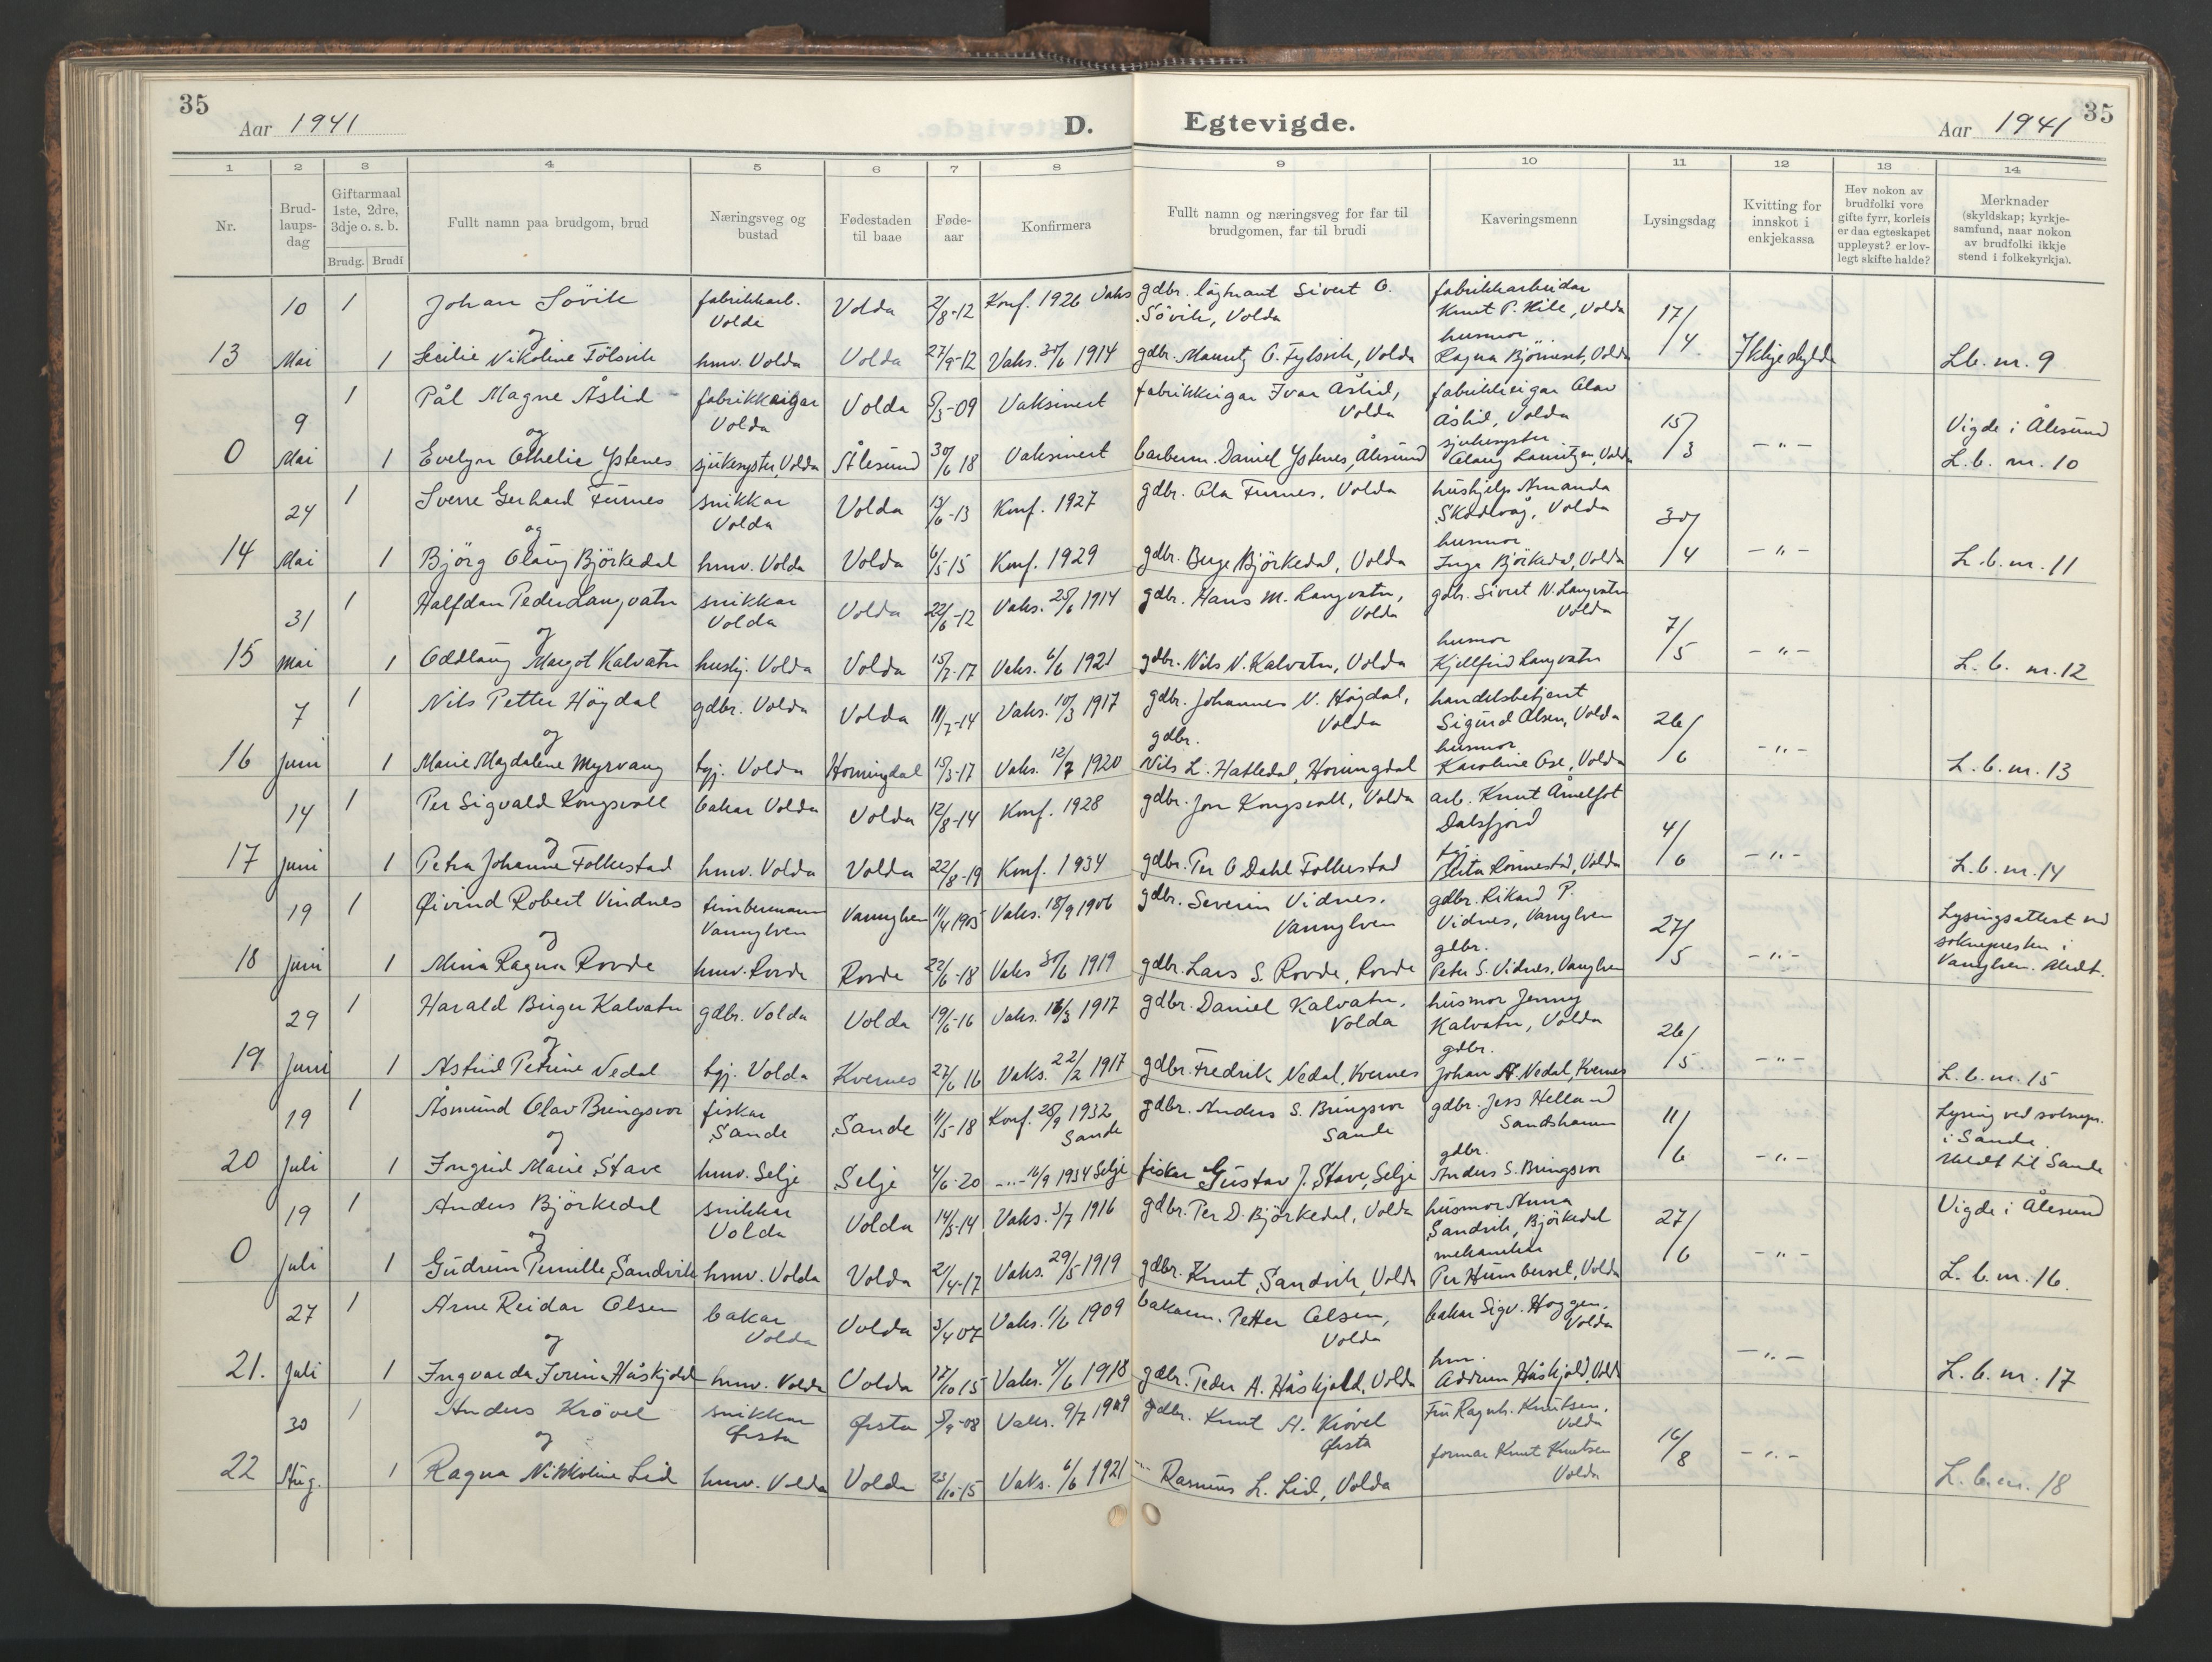 35
Aar 1941
D.
Egtevigde.
Aar 1941
35
1 2 3 4 5 6 7 8 9 10 11 12 13 14
Nr.
Brud-
laups-
dag
Giftarmaal
1ste, 2dre,
3dje o. s. b.
Brudg. Brudi
Fullt namn paa brudgom, brud
Næringsveg og
bustad
Fødestaden
til baae
Føde-
aar
Konfirmera
Fullt namn og næringsveg for far til
brudgomen, far til brudi
Kaveringsmenn
Lysingsdag
Kvitting for
innskot i
enkjekassa
Hev nokon av
brudfolki vore
gifte fyrr, korleis
er daa egteskapet
uppløyst? er lov-
legt skifte halde?
Merknader
(skyldskap; kyrkje-
samfund, naar nokon
av brudfolki ikkje
stend i folkekyrkja).
10 1 Johan Sövik fabrikkarb. Volda Volda 2/8-12 Konf. 1926 Vaks gdbr. Sivert O. Sövik, Volda fabrikkarbeidar Knut P. Kile, Volda 17/4
og
13 Mai 1 Secilie Nikoline Fölsvik hmv. Volda Volda 27/9-12 Vaks. 30/6 1914 gdbr. Mauritz O. Fylsvik, Volda husmor Ragna Björneset, Volda Ikkje skylde Lb. nr. 9
9 1 Pål Magne Åslid fabrikkeigar Volda Volda 5/3-09 Vaksinert fabrikkeigar Ivar Åslid, Volda fabrikkeigar Olav Åslid, Volda 15/3 Vigde i Ålesund
og
0 Mai 1 Evelyn Othelie Ystenes sjukesyster, Volda Ålesund 30/6 18 Vaksinert barberm. Daniel Ystenes, Ålesund sjukesyster Olaug Lauritzen, Volda - " - L. b. nr. 10
24 1 Sverre Gerhard Furnes snikkar Volda Volda 13/6-13 Konf. 1927 gdbr. Ola Furnes, Volda hushjelp Amanda Skodvåg, Volda 30/4
og
14 Mai 1 Björg Olaug Björkedal hmv. Volda Volda 6/5-15 Konf. 1929 gdbr. Berge Björkedal, Volda husmor Inga Björkedal, Volda - " - L. b. nr. 11
31 1 Halfdan Peder Langvatn snikkar Volda Volda 22/6-12 Vaks. 25/6 1914 gdbr. Hans M. Langvatn, Volda gdbr. Sivert N. Langvatn Volda 7/5
og
15 Mai 1 Oddlaug Margot Kalvatn hushj. Volda Volda 15/7-17 Vaks. 6/6 1921 gdbr. Nils N. Kalvatn, Volda husmor Kjellfrid Langvatn - " - L. b. nr. 12
7 1 Nils Petter Högdal gdbr. Volda Volda 11/7-14 Vaks. 10/3 1917 gdbr. Johannes N. Högdal, Volda handelsbetjent Sigurd Olsen, Volda 26/6
og
16 Juni 1 Marie Magdalene Myrvang tgj. Volda Horningdal 15/3-17 Vaks. 12/7 1920 gdbr. Nils L. Hatledal, Horningdal husmor Karoline Ose, Volda - " - L. b. nr. 13
14 1 Per Sigvald Kongsvoll bakar Volda Volda 12/8-14 Konf. 1928 gdbr. Jon Kongsvoll, Volda arb. Knut Åmelfot Dalsfjord 4/6
og
17 Juni 1 Petra Johanne Folkestad hmv. Volda Volda 22/8-19 Konf. 1934 gdbr. Per O Dahl Folkestad Volda - " - L. b. nr. 14
19 1 Øivind Robert Vindnes timbermann Vannylven Vannylven 11/4 1905 Vaks. 18/9 1906 gdbr. Severin Vidnes, Vannylven gdbr. Rikard P. Vidnes, Vannylven 27/5 Lysingsattest ved
og
18 Juni 1 Mina Ragna Rovde hmv. Rovde Rovde 22/6-18 Vaks 30/6 1919 gdbr. Lars S. Rovde, Rovde gdbr. Peter S. Vidnes, Vannylven - " - soknepresten i Vannylven.
29 1 Harald Birger Kalvatn gdbr. Volda Volda 19/6-16 Vaks. 16/3 1917 gdbr. Daniel Kalvatn, Volda husmor Jenny Kalvatn, Volda 26/5
og
19 Juni 1 Astrid Petrine Nedal tgj. Volda Kvernes 27/6 16 Vaks. 22/2 1917 gdbr. Fredrik Nedal, Kvernes gdbr. Johan A. Nedal, Kvernes - " - L. b. nr. 15
19 1 Åsmund Olav Bringsvor fiskar Sande Sande 11/5-18 Konf. 25/9 1932 Sande gdbr. Anders S. Bringsvor Sande gdbr. Jess Helland Sandshamn 11/6 Lysing ved soknepr. i Sande.
og
20 Juli 1 Ingrid Marie Stave hmv. Selje Selje 4/6-20 - " - 16/9 1934 Selje fiskar Gustav J. Stave, Selje gdbr. Anders S. Bringsvor - " - Meldt til Sande
19 1 Anders Björkedal snikkar Volda Volda 14/3-14 Vaks. 3/7 1916 gdbr. Per D. Björkedal, Volda husmor Anna Sandvik, Björkedal 27/6 Vigde i Ålesund
og
0 Juli 1 Gudrun Pernille Sandvik hmv. Volda Volda 2/4-17 Vaks. 29/5 1919 gdbr. Knut Sandvik, Volda mekanikar Per Humberset, Volda - " - L. b. nr. 16.
27 1 Arne Reidar Olsen bakar Volda Volda 3/4 07 Vaks. 1/6 1909 bakarm. Petter Olsen, Volda bakar Sigv. Hoggen, Volda
og
21. Juli 1 Ingvarda Jorina Håskjold hmv. Volda Volda 17/10 15 Vaks. 4/6 1918 gdbr. Peder A. Håskjold, Volda hm. Håskjold, Volda - " - L. b. nr. 17
30 1 Anders Krövel snikkar Ørsta Ørsta 5/9-08 Vaks. 9/7 1909 gdbr. Knut A. Krövel Ørsta Fru Ragnh. Knutsen, Volda 16/8
og
22 Aug. 1 Ragna Nikkoline Lid hmv. Volda Volda 23/10-15 Vaks. 6/6 1921 - " - Rasmus L. Lid, Volda formar Knut Knutsen Volda - " - L. b. nr. 18